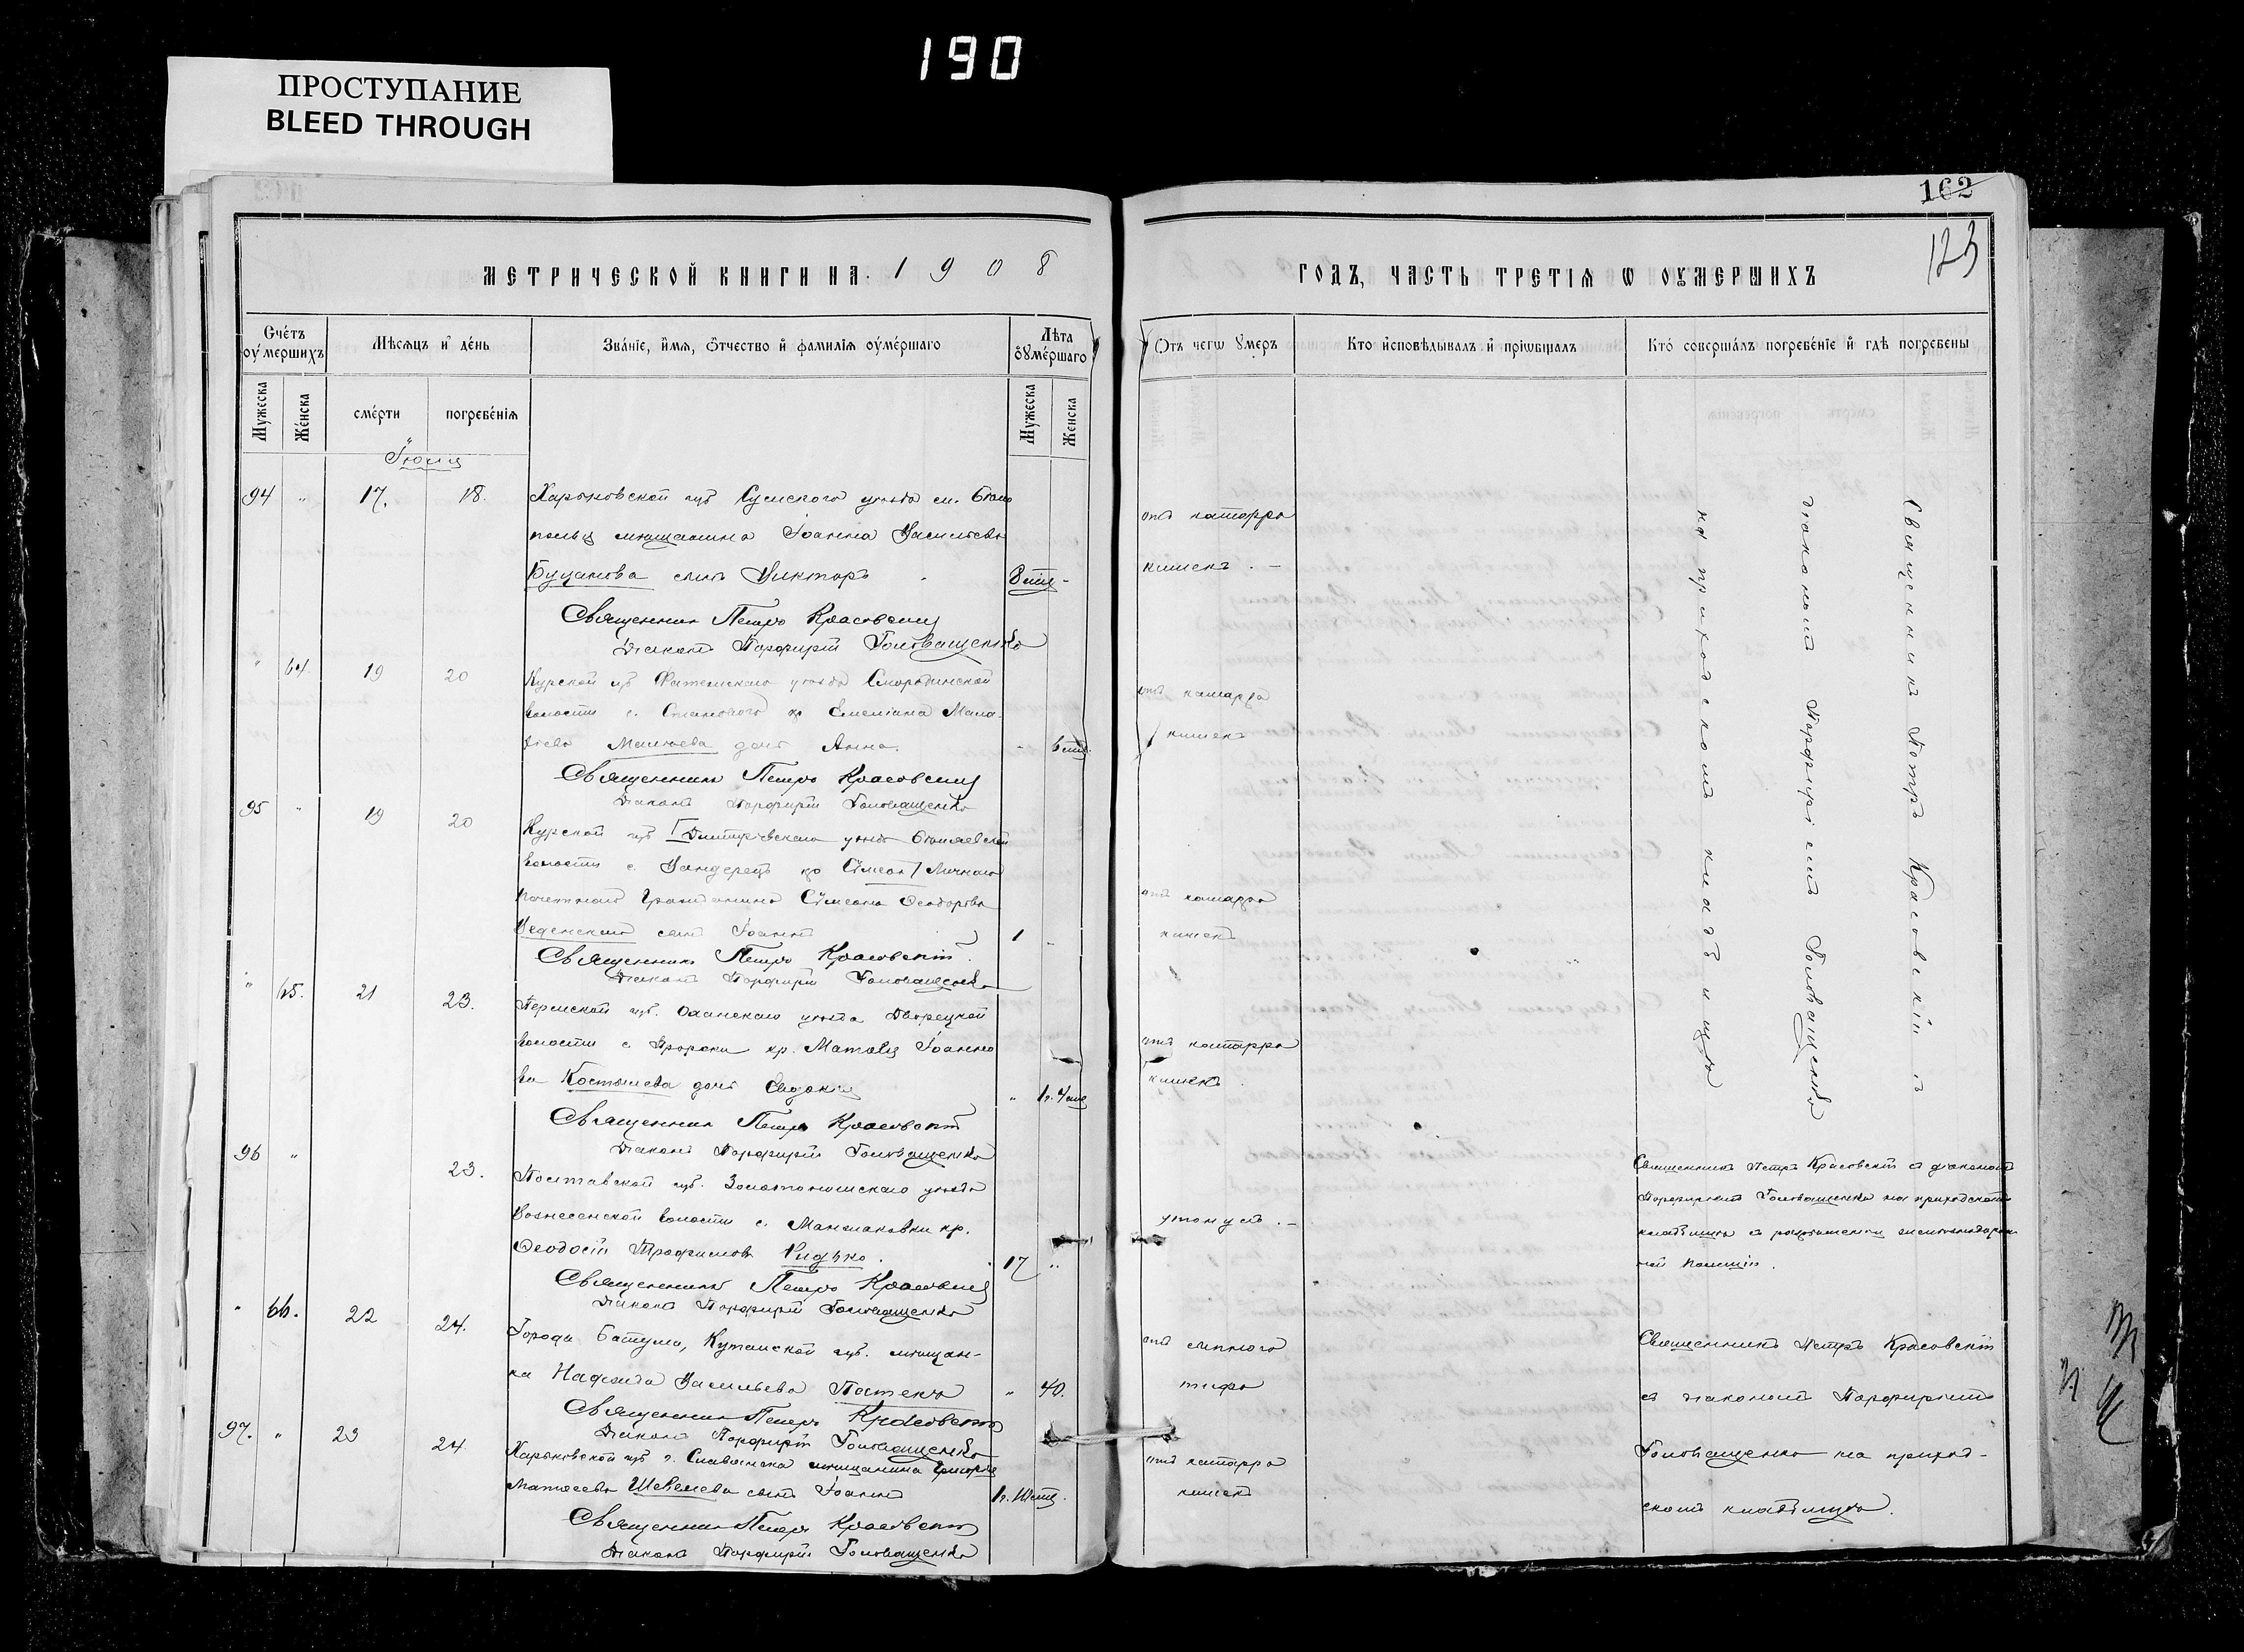 190
ПРОСТУПАНИЕ
BLEED THROUGH
162
123
МЕТРИЧЕСКОЙ КНИГИ НА 1908
ГОДЪ, ЧАСТЬ ТРЕТІѦ Ѡ ОУМЕРШИХЪ
Счéтъ оумершихъ
Мѣсѧцъ и дéнь
Звáніе, имѧ, Ѻтчество и фамилїѧ оумéршаго
Лѣта оумéршаго
Отъ чегѡ умеръ
Кто исповѣдывалъ и прїѡбщалъ
Ктó совершáлъ погребéнїе и гдѣ погребены
Мужеска
Женска
смéрти
погребéнїѧ
Мужеска
Женска
Іюня
94 " 17. 18. Харьковской губ Сумского уѣзда м. Бѣло
полья мѣщанина Іоанна Васильева
Буцанова сынъ Викторъ 8 мѣс -
отъ катарра
кишекъ . –
Священникъ Петръ Красовскій
Діаконъ Порфирій Головащенко
" 64 19 20 Курской губ Фатежскаго уѣзда Смородинской
волости с. Станового кр Емеліана
Малѣева дочь Анна. - 6 мѣс.
отъ катарра
кишекъ
Священникъ Петръ Красовскій
Діаконъ Порфирій Головащенко
95 " 19 20 Курской губ Дмитріевскаго уѣзда
волости с. кр Сімеон Личнаго
почетнаго гражданина Сімеона Феодорова
Веденскаго сынъ Іоаннъ 1 -
отъ катарра
кишекъ
Священникъ Петръ Красовскій.
Діаконъ Порфирій Головащенко
" 65. 21 23. Пермской губ. Оханскаго уѣзда Дворецкой
волости с. кр. Матвѣя Іоанно
ва Костылева дочь Евдокія " 1 г. 4 мѣс
отъ катарра
кишекъ
Священникъ Петръ Красовскій
Діаконъ Порфирій Головащенко
Священникъ Петръ Красовскій съ
діакономъ Порфиріемъ Головащенко
на приходскомъ кладбищѣ
96 " 23. Полтавской губ. Золотоношскаго уѣзда
Вознесенской волости с. Мангилаковки кр.
Феодосій Трофимовъ Рудько. 17 "
утонулъ . –
Священникъ Петръ Красовскій съ діакономъ
Порфиріемъ Головащенко на приходскомъ
кладбищѣ съ разрѣшенія
ной полиціи.
Священникъ Петръ Красовскій
Діаконъ Порфирій Головащенко
" 66. 22 24. Города Батума, Кутаиской губ. мѣщан-
ка Надежда Васильева " 40.
отъ сыпного
тифа
Священникъ Петръ Красовскій
съ діакономъ Порфиріемъ
Головащенко на приход-
скомъ кладбищѣ.
Священникъ Петръ Красовскій
Діаконъ Порфирій Головащенко
97. " 23 24 Харьковской губ г. Славянска мѣщанина Григорія
Матвеева Шевелева сынъ Іоаннъ 1 г. 11 мѣс.
отъ катарра
кишекъ
Священникъ Петръ Красовскій
Діаконъ Порфирій Головащенко